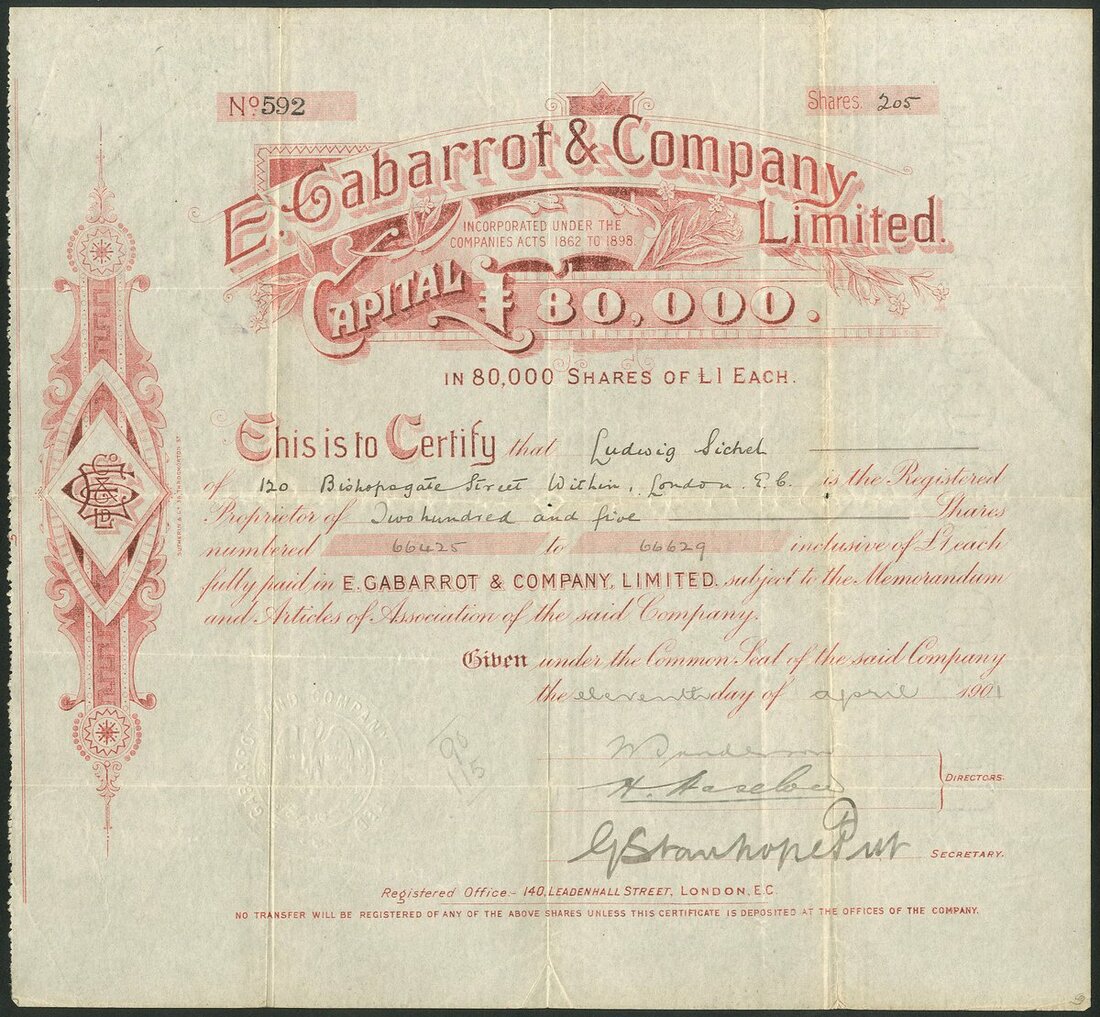 Nº 592
Shares. 205
E. Gabarrot & Company Limited.
INCORPORATED UNDER THE
COMPANIES ACTS 1862 TO 1898.
CAPITAL £80,000.
IN 80,000 SHARES OF £1 EACH.
This is to Certify that Ludwig Sichel
of 120 Bishopsgate Street Within, London. E.C. is the Registered
Proprietor of Two hundred and five Shares
numbered 66425 to 66629 inclusive of £1 each
fully paid in E. GABARROT & COMPANY, LIMITED. subject to the Memorandum
and Articles of Association of the said Company.
Given under the Common Seal of the said Company
the eleventh day of april 1901
DIRECTORS.
SECRETARY.
Registered Office:- 140, LEADENHALL STREET, LONDON, E.C.
NO TRANSFER WILL BE REGISTERED OF ANY OF THE ABOVE SHARES UNLESS THIS CERTIFICATE IS DEPOSITED AT THE OFFICES OF THE COMPANY.